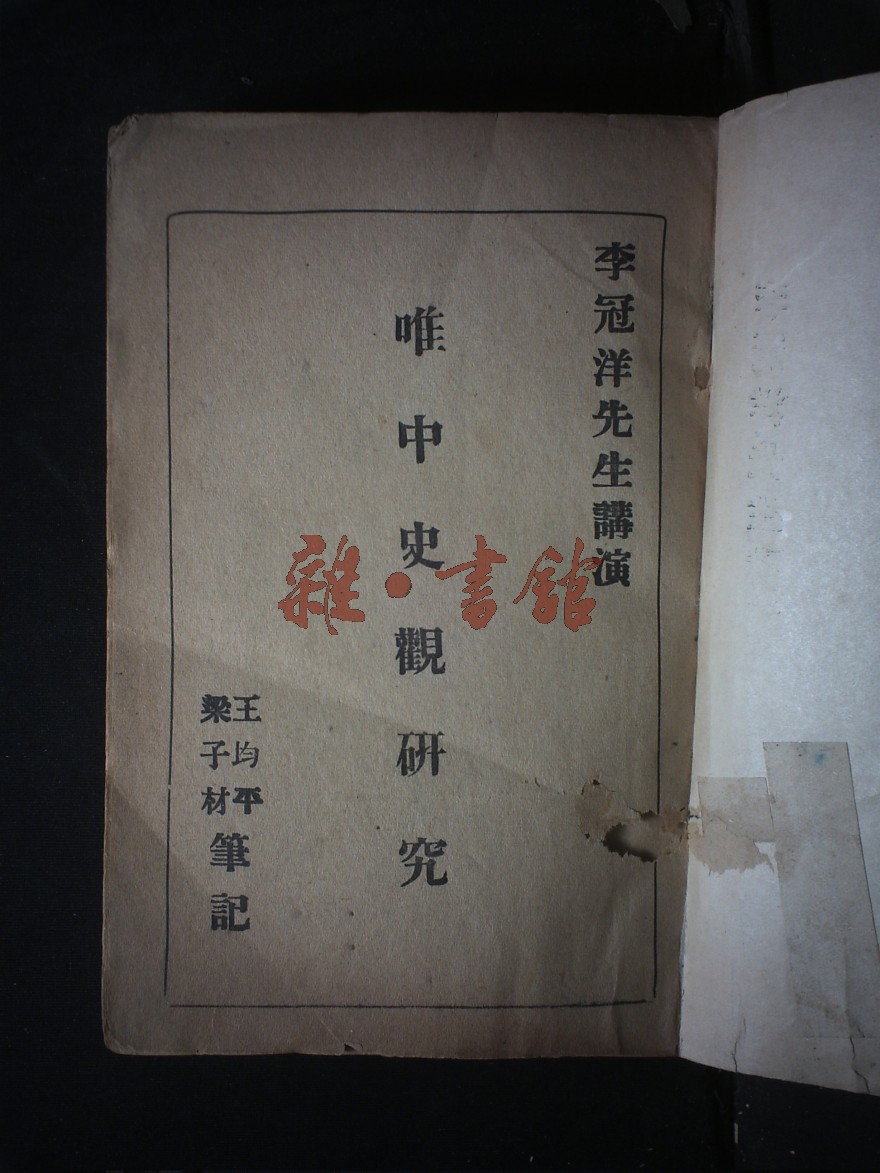 李冠洋先生講演
唯中史觀研究
王均平
梁子材
筆記
雜·書館